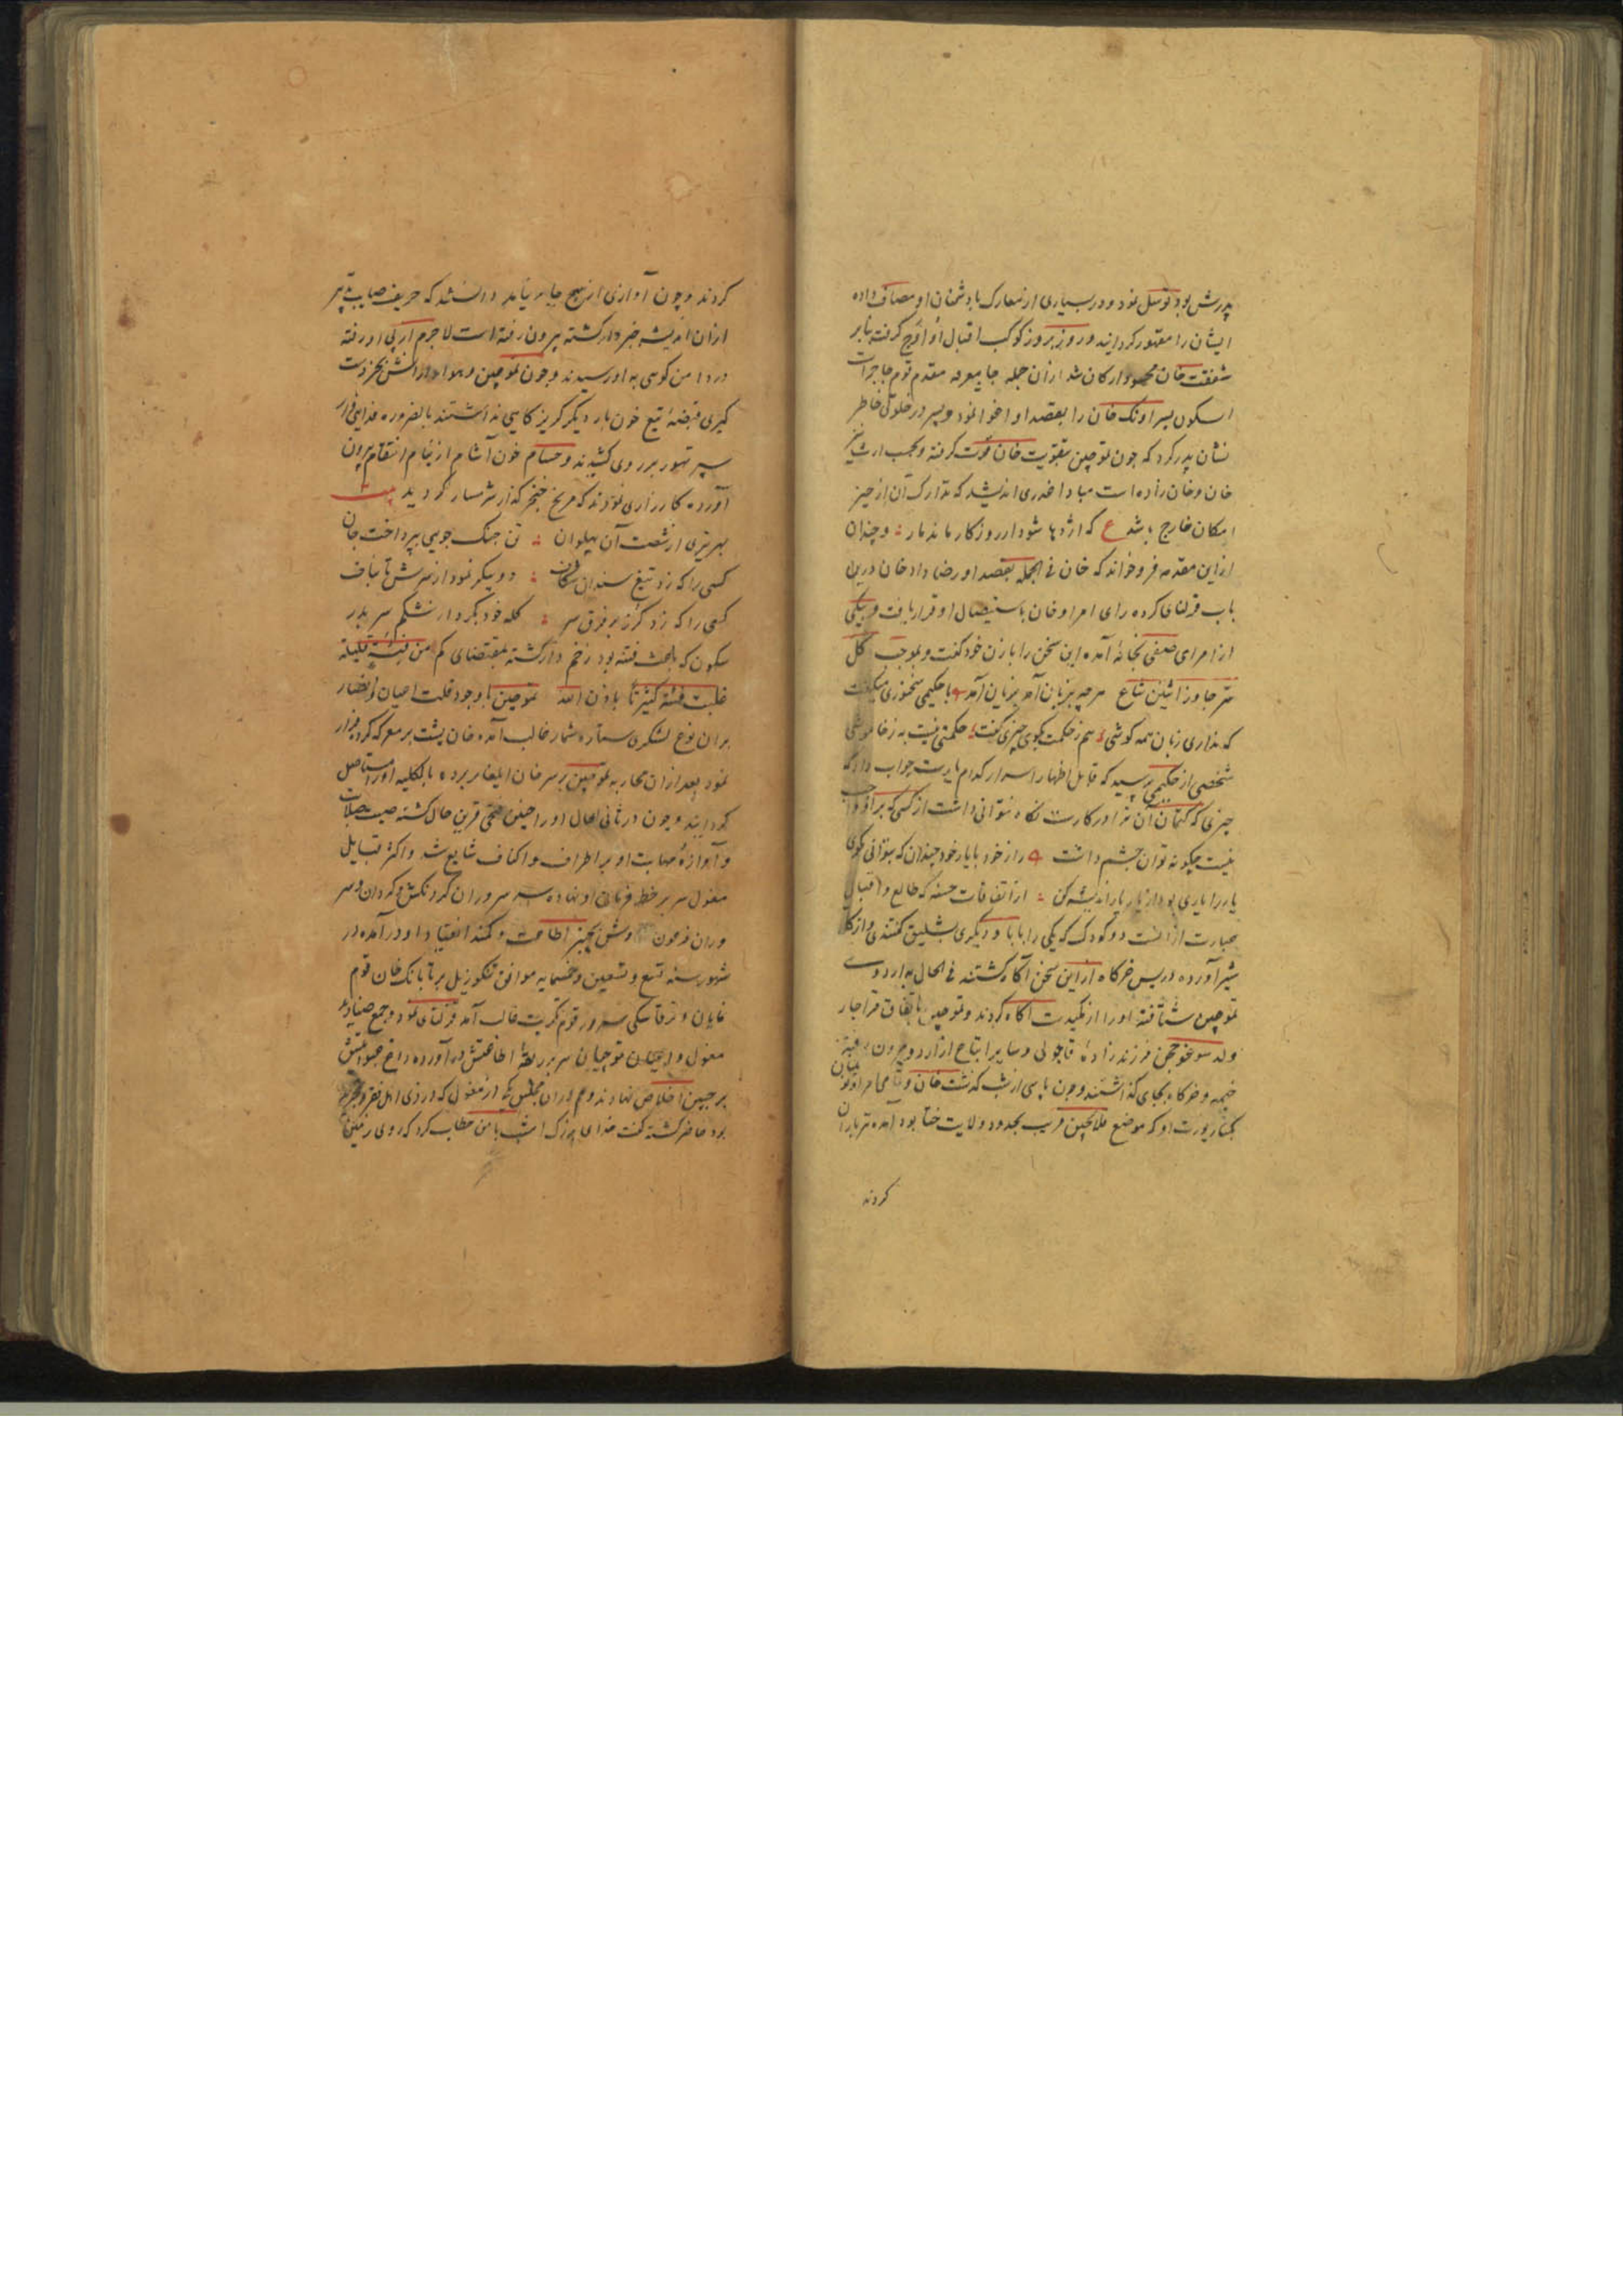 پدرش بود توسل نمود و در بسیاری از معارک با دشمنان او مصاف داده
ایشان را مقهور کردانید و روز بروز کوکب اقبال او اوج کرفت بنابر
شفقت خان محسود ارکان شد از آن جمله جاموقه مقدم قوم جاجرات
سکون پسر اونک خان را بقصد او اغوا نمود و پسر در خلوتی خاطر
نشان پدر کرد که چون تموچین بتقویت خان قوت کرفته و بحسب ارث نیز
خان و خان زاده است مبادا غدری اندیشد که تدارک آن از حیز
امکان خارج باشد ع که اژدها شود ار روزکار یابد مار و چندان
از این مقدمه فرو خواند که خان فی الجمله بقصد او رضا داد خان درین
باب قرلتای کرده رای امرا و خان باستیصال او قرار یافت و یکی
از امرای صنفی بخانه آمده این سخن را با زن خود کفت و بموجب کل
سر جاوز اثنین شاع هر چه بزبان آمد بزیان آمد با حکیمی سخنوری میکفت
که نداری زبان همه کوشی هم ز حکمت بکوی چیزی کفت حکمتی نیست به ز خاموشی
شخصی از حکیمی پرسید که قابل اظهار اسرار کدام یارست جواب داد که
چیزی که کتمان آن ترا در کارست نکاه نتوانی داشت از کسی که بر او واجب
نیست چکونه توان چشم داشت راز خود با یار خود چندان که بتوانی مکوی
یار را یاری بود از یار یار اندیشه کن از اتفاقات حسنه که طالع و اقبال
عبارت از آنست دو کودک که یکی را بابا و دیکری بشلیق کفتندی و از کله
شیر آورده در پس خرکاه از این سخن آکاه کشتند فی الحال به اردوی
تموچین شتافته او را از مکیدت آکاه کردند و تموچین باتفاق قراجار
ولد سوغوججن فرزندزاده قاجولی و سایر اتباع از اردو بیرون رفته
خیمه و خرکاه بجای کذاشتند و چون پاسی از شب کذشت خان و تمامی امرا و نوینان
بکنار یورت او که موضع بلاجین قریب بحدود ولایت ختا بود آمده تیرباران
کردند
کردند و چون آوازی از هیچ جا بر نیامد دانستند که حریف صایب تدبیر
از آن اندیشه خبردار کشته بیرون رفته است لاجرم از پی او رفته
در دامن کوهی به او رسیدند و چون تموچین و هوادارانش بجز دست
کیری قبضه تیغ خون بار دیکر کریزکاهی نداشتند بالضروره فدایی وار
سپر تهور بر روی کشیدند و حسام خون آشام از نیام انتقام بیرون
آورده کارزاری نمودند که مریخ خنجر کذار شرمسار کردید بیت
بهر تیری از شصت آن پهلوان تن جنک جویی بپرداخت جان
کسی را که زد تیغ سندان شکاف دو پیکر نمود از سرش تا بناف
کسی را که زد کرز بر فرق سر کله خود بکرد از شکم سر بدر
سکون که باعث فتنه بود زخم دار کشته بمقتضای کم من فئة قلیلة
غلبت فئة کثیرة باذن الله تموچین با وجود قلت اعیان و انصار
بر آن نوع لشکری ستاره شمار غالب آمده خان پشت بر معرکه کرده فرار
نمود بعد از آن محاربه تموچین بر سر خان ایلغار برده بالکلیه او را مستاصل
کردانید و چون در ثانی الحال او را چنین فتحی قرین حال کشته صیت صلابت
و آوازه مهابت او بر اطراف و اکناف شایع شد و اکثر قبایل
مغول سر بر خط فرمان او نهاده سر سروران کردنکش و کردان و سر
وران فرعون وش بچنبر اطاعت و کمند انقیاد او در آمده در
شهور سنه تسع و تسعین و خمسمایه موافق تنکوزئیل بر تابانک خان قوم
نایان و ترقا بیکی سرور قوم مکریت غالب آمد قرلتای نمود و جمع صنادید
مغول و اعیان قوجیان سر بر ربقه اطاعتش در آورده داغ عبودیتش
بر جبین اخلاص نهادند و هم در آن مجلس یکی از مغول که در زی اهل فقر و تجرید
بود حاضر کشته کفت خدای بزرک امشب با من خطاب کرد که روی زمین را